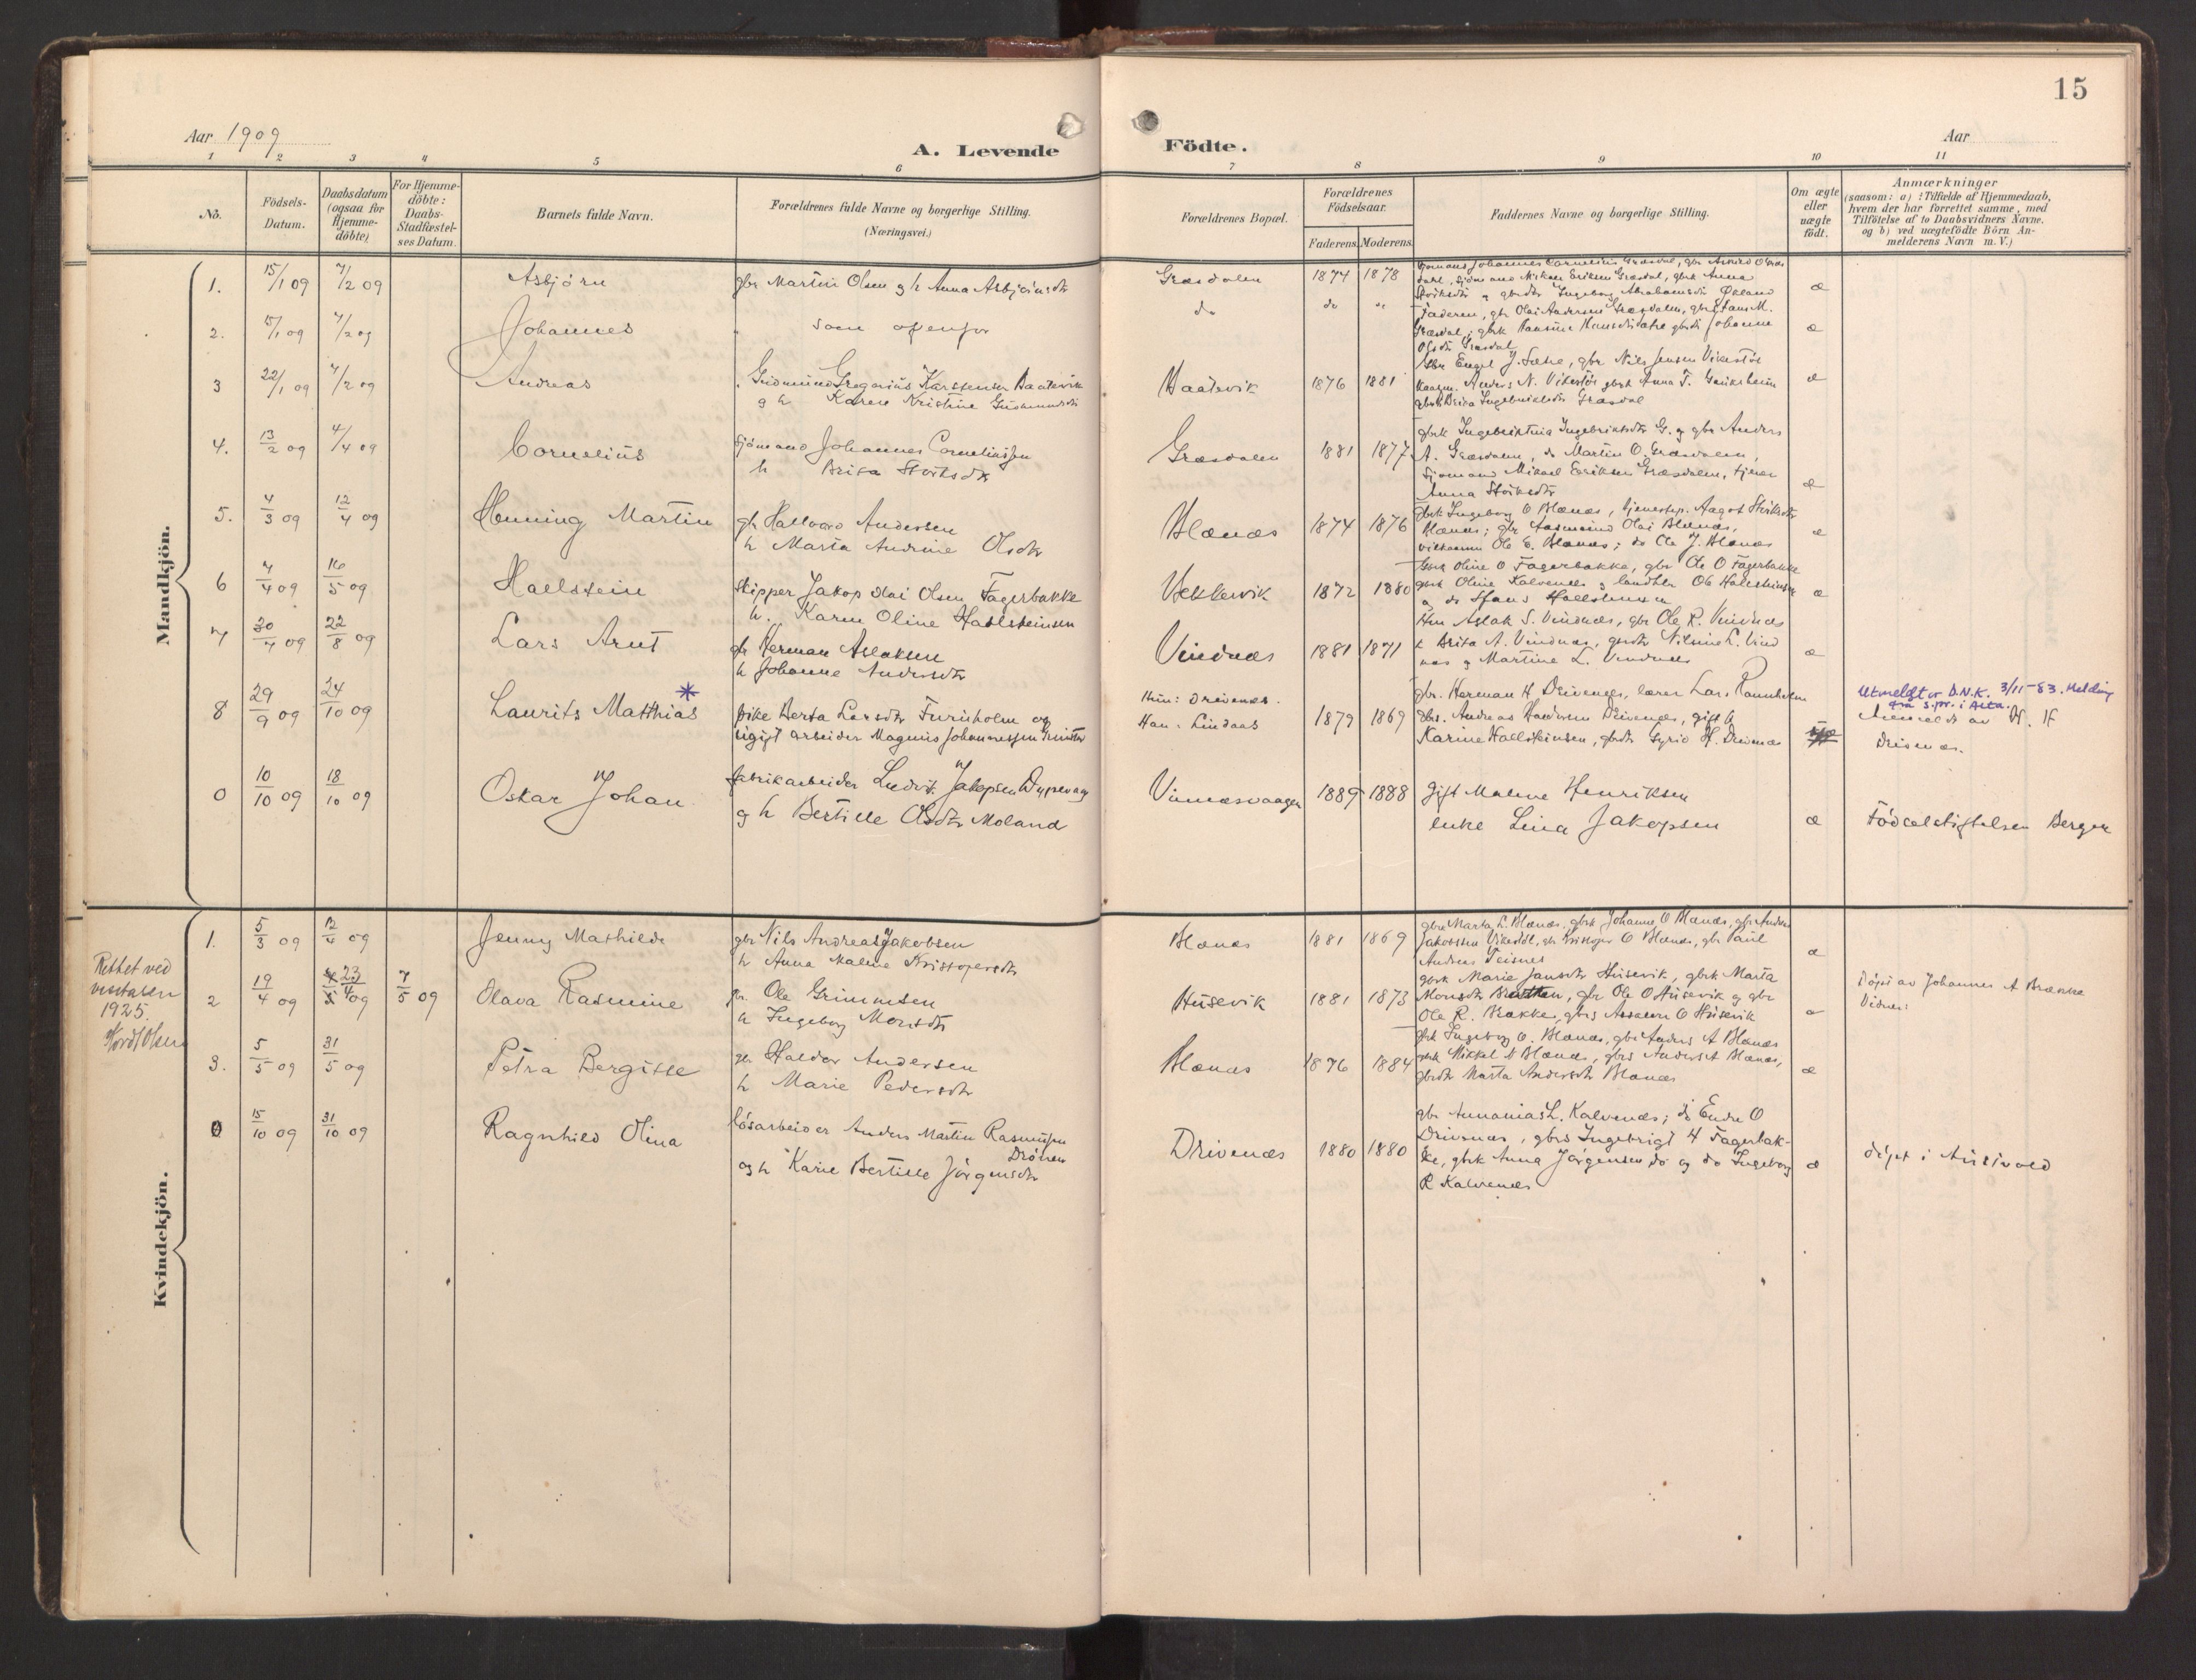 15
Aar 1909
A. Levende
Födte.
Aar
1 2 3 4 5 6 7 8 9 10 11
No.
Födsels-
Datum.
Daabsdatum
(ogsaa for
Hjemme-
döbte)
For Hjemme-
döbte:
Daabs-
Stadfæstel-
ses Datum.
Barnets fulde Navn.
Forældrenes fulde Navne og borgerlige Stilling.
(Næringsvei.)
Forældrenes Bopæl.
Forældrenes
Födselsaar.
Faderens. Moderens.
Faddernes Navne og borgerlige Stilling.
Om ægte
eller
uægte
födt.
Anmærkninger
(saasom: a) i Tilfælde af Hjemmedaab,
hvem der har forrettet samme, med
Tilföielse af to Daabsvidners Navne.
og b) ved uægtefödte Börn An-
melderens Navn m. V.)
Mandkjön.
1. 15/1 09 7/2 09 Asbjörn gbr Martin Olsen og h Anna Asbjörnsdtr Græsdalen 1874 1878 æ
2. 15/1 09 7/2 09 Johannes som ovenfor do do
Faderen, gbr Olai Andersen Græsdalen, gbr Hans M.
Græsdal, gbrk Hansdtr Johanne
Olsdtr Græsdal æ
3 22/1 09 7/2 09 Andreas Gudmund Gregorius Karstensen Haatevik
og h Karen Kristine Gudmundsdtr Haatevik 1876 1881
gbr Engel J. Sæthe, gbr Nils Jensen Vikestöl
Anders N. Vikestöl gbrk Anna T.
gbrk Brita Ingebriktsdtr Græsdal æ
4. 13/2 09 4/4 09 Cornelius Sjömand Johannes Corneliussen
h Brita Störksdtr Græsdalen 1881 1877
gbrk Ingebriktina Ingebriktsdtr G. og gbr Anders
A. Græsdalen, do Martin O. Græsdalen,
Sjömand Mikael Eriksen Græsdalen, tjener
Anna Störksdtr æ
5. 4/3 09 12/4 09 Henning Martin gbr Hallvard Andersen
h Marta Andrine Olsdtr Blænæs 1874 1876
gbrk Ingeborg O Blænæs, tjenestep. Aagot
Blænæs; gbr Olai Blænæs,
Ole E. Blænæs; do Ole J. Blænæs æ
6 7/4 09 16/5 09 Hallstein Skipper Jakop Olai Olsen Fagerbakke
h. Karen Oline Hallsteinsen Vekkevik 1872 1880
gbrk Oline O Fagerbakke, gbr Ole O Fagerbakke
gbrk Oline Kalvenes og landhdl Ole Hallsteinsen
og do Hallsteinsen æ
7 30/7 09 22/8 09 Lars Arnt gbr Herman Aslaksen
h Johanne Andersdtr Vindnæs 1881 1871
Aslak S. Vindnæs, gbr Ole R. Vindnæs
k Brita A. Vindnæs, gbrdtr Nilsine L. Vind
næs og Martine L. Vindnæs æ
8 29/9 09 24/10 09 Laurits Matthias * pike Berta Larsdtr Furuholm og
ugift arbeider Magnus Johannessen Hun: Drivenes.
Han: Lindaas 1879 1869
gbr. Herman H Drivenes, lærer Lars Rannholm
gbrs. Andreas Haldorsen Drivenes, gift k
Karine Hallsteinsen, gbrdtr Syrid H. Drivenes
Utmeldt av D.N.K. 3/11-83. Melding
fra s.pr. i Asta.
Anmeldt av H. H
Drivenæs.
0 10/10 09 18/10 09 Oskar Johan fabrikarbeider Ludvik Jakopsen Dyprevaag
og h Bertille Olsdtr Moland Vinnesvaagen 1889 1888
Gift Malene Henriksen
enke Lina Jakopsen æ Födselstiftelsen Bergen
Kvindekjön.
1. 5/3 09 12/4 09 Jenny Mathilde gbr Nils Andreas Jakobsen
h Anna Malene Kristofersdtr Blænæs 1881 1869
gbr Marta L. Blænæs, gbrk Johanne O Blænæs, gbr Anders
Jakobsen Vikedal, gbr Kristofer O Blænæs, gbr Paul
Andreas Teisnes æ
Rettet ved
visitasen
1925.
2 19/4 09 23/4 09 7/5 09 Olava Rasmine gbr. Ole Grimmsen
h Ingeborg Monsdtr Husevik 1881 1873
gbrk Marie Jansdtr Husevik, gbrk Marta
Monsdtr, gbr Ole O Husevik og gbr
Ole R. Brække, gbrs O Husevik æ
Döpt av Johannes A Brække
Vidner:
3. 5/5 09 31/5 09 Petra Bergitte gbr Haldor Andersen
h Marie Pedersdtr Blænæs 1876 1884
gbrk Ingeborg O. Blænæs, gbr Anders A Blænæs
gbrk Mikkel N Blænæs, gbrs Anders A Blænæs,
gbrdtr Marta Andersdtr Blænæs æ
0 15/10 09 31/10 09 Ragnhild Olina lösarbeider Anders Martin Rasmussen
Drönen
og h Karie Bertille Jörgensdtr Drivenæs 1880 1880
gbr Annanias L. Kalvenæs; do Endre O
Drivenæs, gbrs Ingebrigt H Fagerbak-
ke, gbrk Anna Jörgensen do og do Ingeborg
R Kalvenæs æ döpt i Austevold